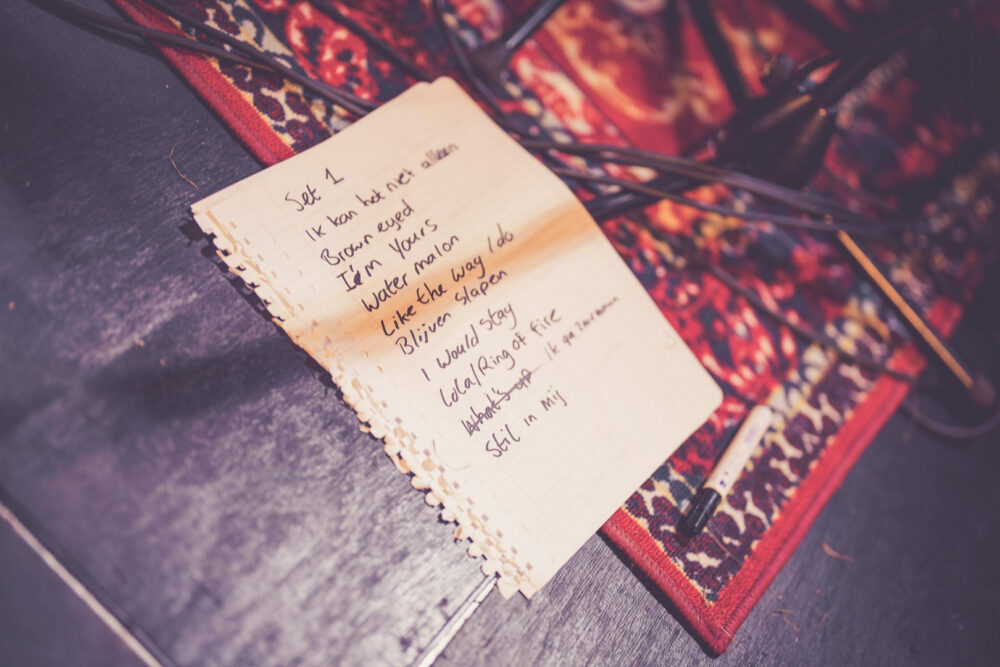 Set 1
Ik kan het niet alleen
Brown eyed
I'm Yours
Water malon
Like the way I do
Blijven slapen
I would stay
Lola/Ring of Fire
What's up ik ga
Stil in mij